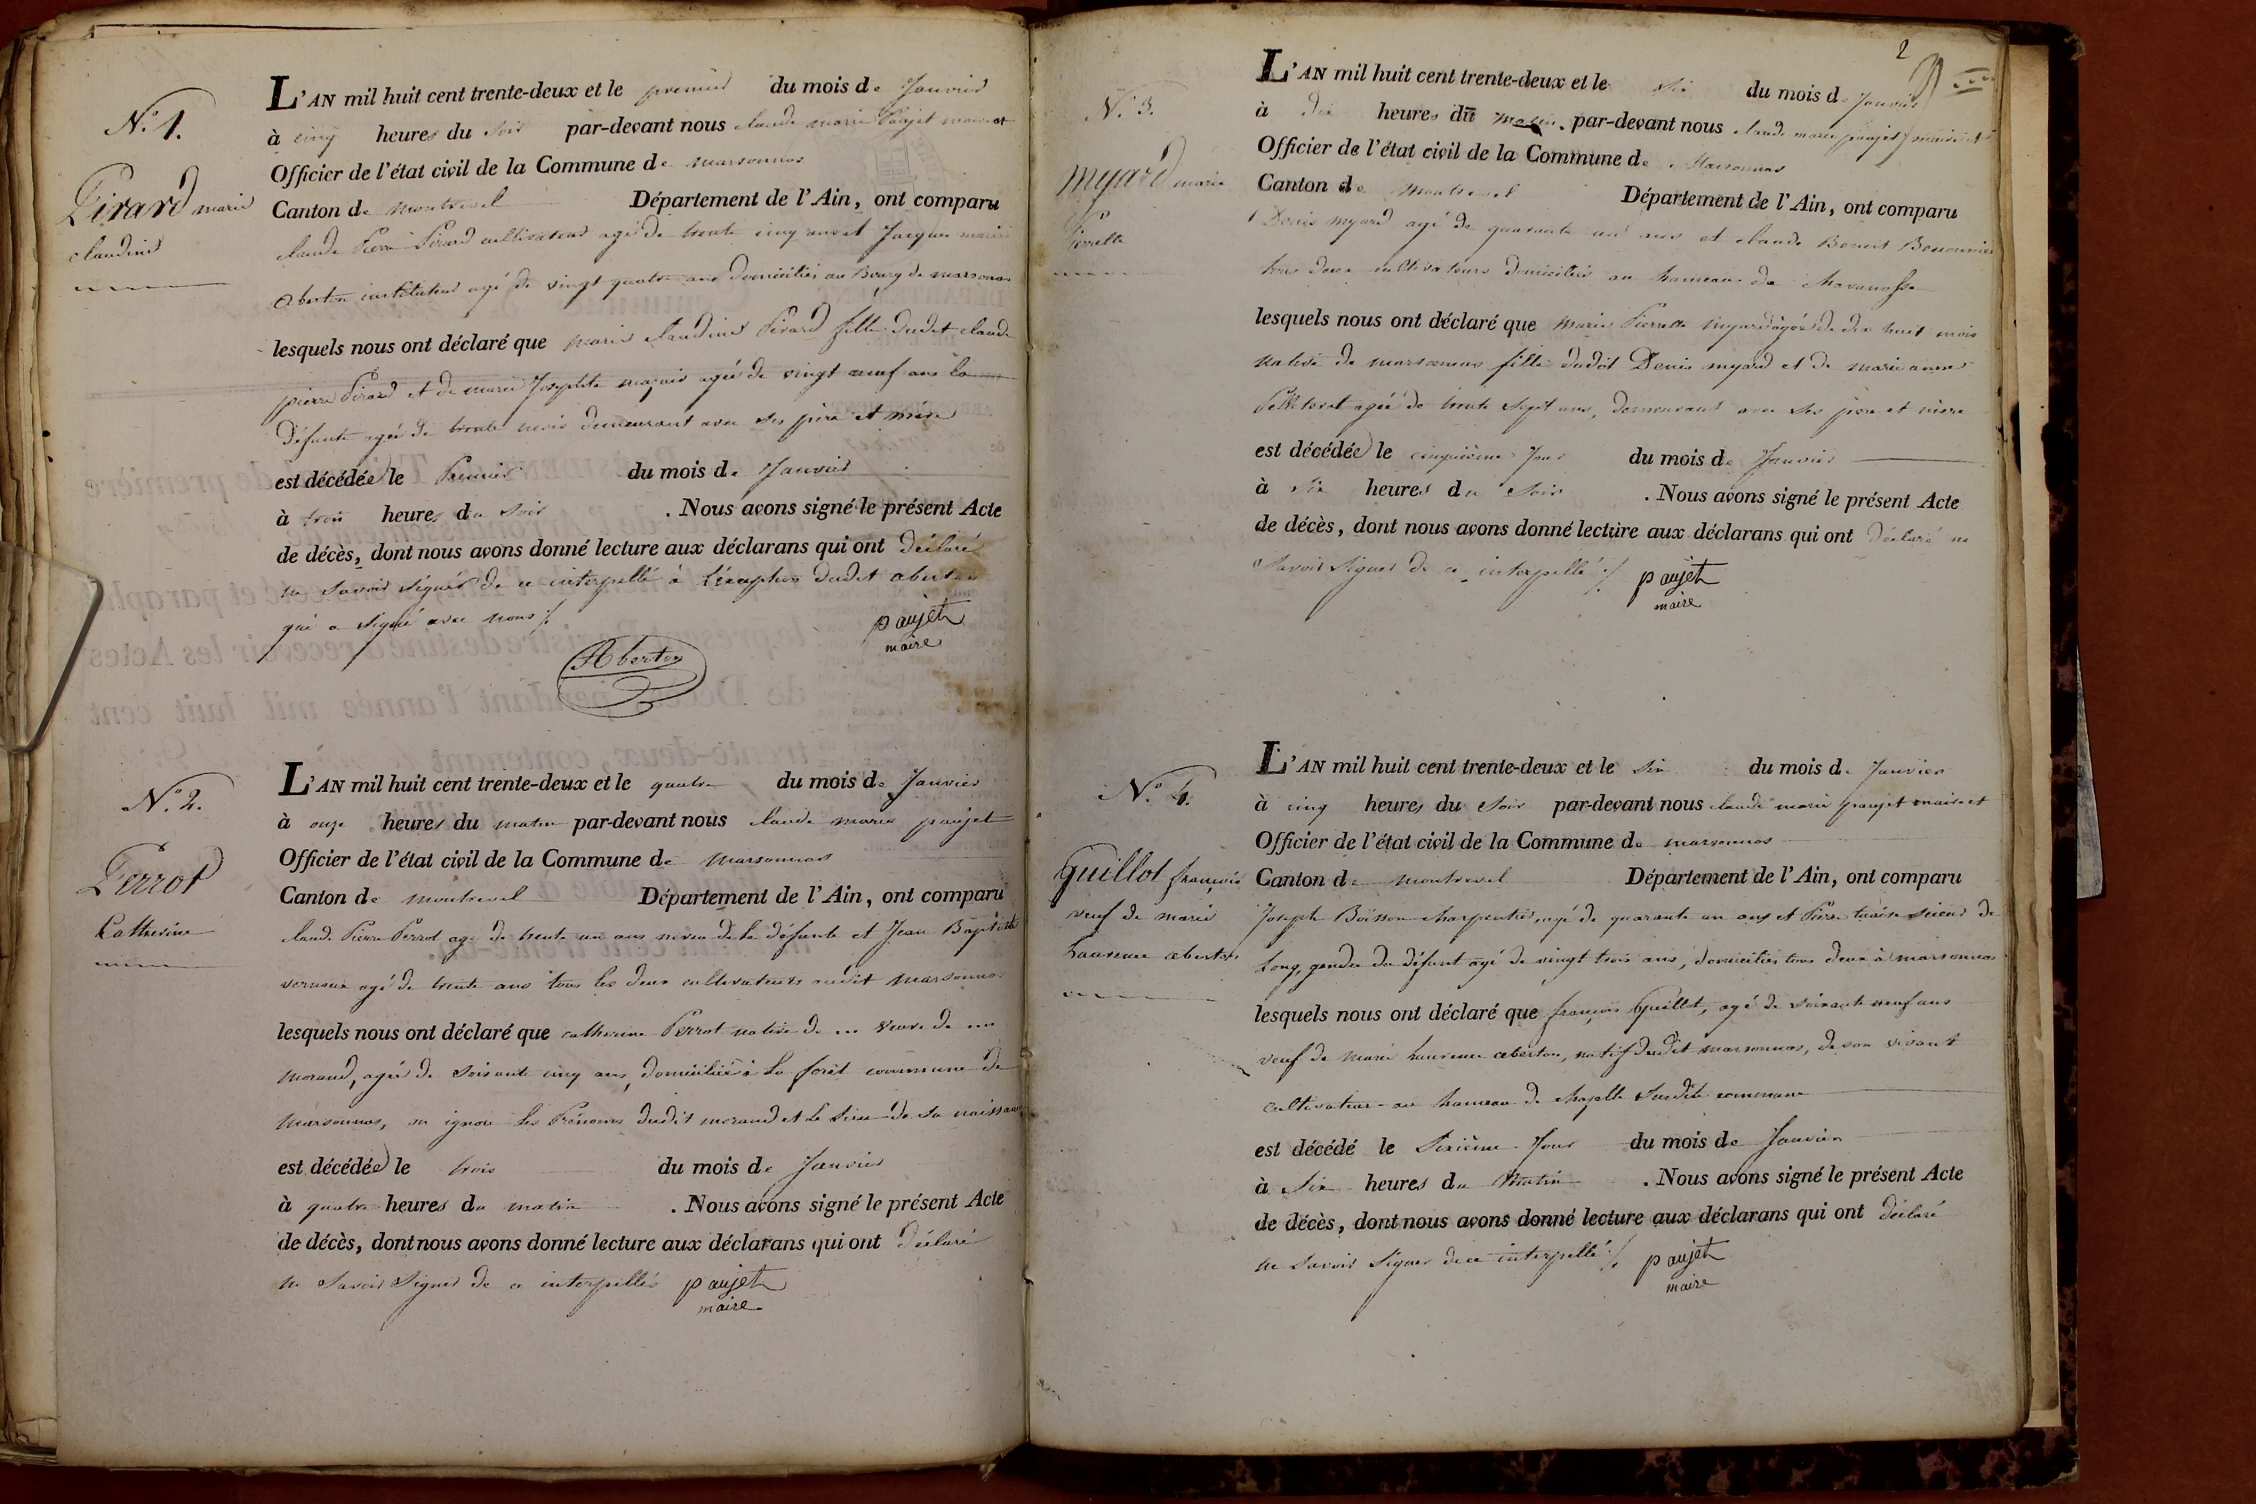 N.° 1.
Pirard marie
claudine
L'AN mil huit cent trente-deux et le premier du mois de Janvier
à cinq heures du soir par-devant nous claude marie paujet maire et
Officier de l'état civil de la Commune de marsonnas
Canton de montrevel Département de l'Ain, ont comparu
claude Pierre Pirard cultivateur agé de trente cinq ans et Jacques marie
aberton instituteur agé de vingt quatre ans domiciliés au Bourg de marsonnas
lesquels nous ont déclaré que marie claudine Pirard fille dudit claude
pierre Pirard et de marie Josephte agée de vingt neuf ans la
défunte agée de trente mois demeurant avec ses père et mère
est décédée le Premier du mois de Janvier
à trois heures du soir . Nous avons signé le présent Acte
de décès, dont nous avons donné lecture aux déclarans qui ont déclaré
ne savoir signer de ce interpellé à l'éxception dudit aberton
qui a signé avec nous ./.
paujet
maire
Aberton
N.° 2.
Perrot
Catherine
L'AN mil huit cent trente-deux et le quatre du mois de Janvier
à onze heures du matin par-devant nous claude marie paujet
Officier de l'état civil de la Commune de marsonnas
Canton de montrevel Département de l'Ain, ont comparu
claude Pierre Perrot agé de trente un ans neveu de la défunte et Jean Baptiste
vernoux agé de trente ans tous les deux cultivateurs audit marsonnas
lesquels nous ont déclaré que catherine Perrot native de ... veuve de ...
morand, agée de soixante cinq ans, domiciliée à la forêt commune de
marsonnas, on ignore les Prénoms dudit morand et le lieu de sa naissance
est décédée le trois du mois de Janvier
à quatre heures du matin . Nous avons signé le présent Acte
de décès, dont nous avons donné lecture aux déclarans qui ont déclaré
ne savoir signer de ce interpellés paujet
maire
2
N.° 3.
myard marie
Pierrette
L'AN mil huit cent trente-deux et le six du mois de Janvier
à dix heures du matin. par-devant nous claude marie paujet maire et
Officier de l'état civil de la Commune de Marsonnas
Canton de montrevel Département de l'Ain, ont comparu
Denis myard agé de quarante un ans et claude Benoit
tous deux cultivateurs domiciliés au hameau de
lesquels nous ont déclaré que marie Pierrette myard agée de dix huit mois
native de marsonnas fille dudit Denis myard et de marie anne
agée de trente sept ans, demeurant avec ses père et mère
est décédée le cinquième Jour du mois de Janvier
à six heures du soir . Nous avons signé le présent Acte
de décès, dont nous avons donné lecture aux déclarans qui ont déclaré ne
savoir signer de ce interpellé ./. paujet
maire
N.° 4.
Guillot françois
veuf de marie
Laurence aberton
L'AN mil huit cent trente-deux et le six du mois de Janvier
à cinq heures du soir par-devant nous claude marie paujet maire et
Officier de l'état civil de la Commune de marsonnas
Canton de montrevel Département de l'Ain, ont comparu
Joseph Boisson charpentier, agé de quarante un ans et Pierre scieur de
long, gendre du défunt agé de vingt trois ans, domiciliés tous deux à marsonnas
lesquels nous ont déclaré que françois Guillot, agé de soixante neuf ans
veuf de marie Laurence aberton, natif dudit marsonnas, de son vivant
cultivateur au hameau de chapelle susdite commune
est décédé le Sixième Jour du mois de Janvier
à six heures du matin . Nous avons signé le présent Acte
de décès, dont nous avons donné lecture aux déclarans qui ont déclaré
ne savoir signer de ce interpellé ./. paujet
maire